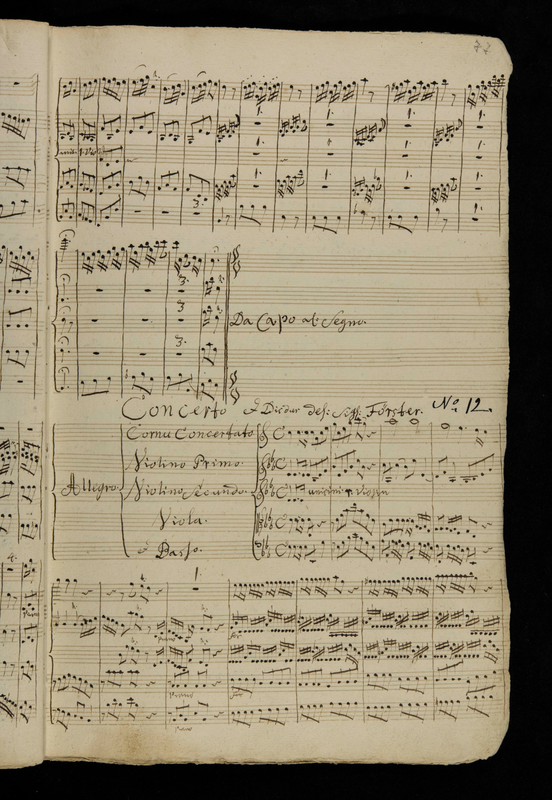 Da Capo al: Segno.
Concerto Förster. No. 12.
Cornu Concertato
Violino Primo.
Allegro. Violino Secundo. unisoni
Viola.
Basso.